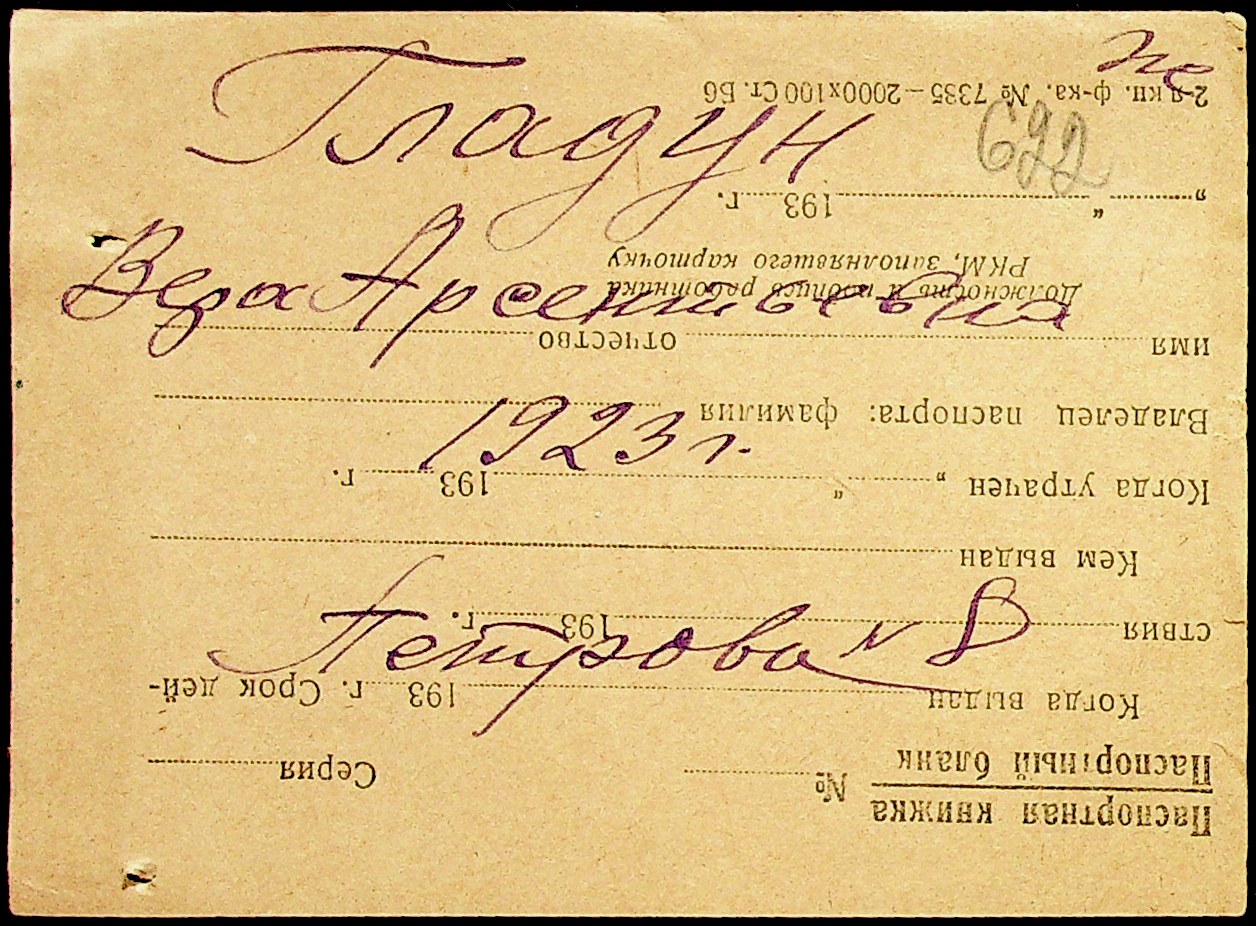 Гладун
Вера Арсентьевна
1923 г.
Петрова № 8
622
Паспортная книжка
Паспортный бланк
№ Серия
Когда выдан 193 г. Срок дей-
ствия 193 г.
Кем выдан
Когда утрачен „ “ 193 г.
Владелец паспорта: фамилия
имя отчество
Должность и подпись работника
РКМ, заполнявшего карточку
„ “ 193 г.
2-я кн. ф-ка. № 7335 — 2000х100 Ст. Б6